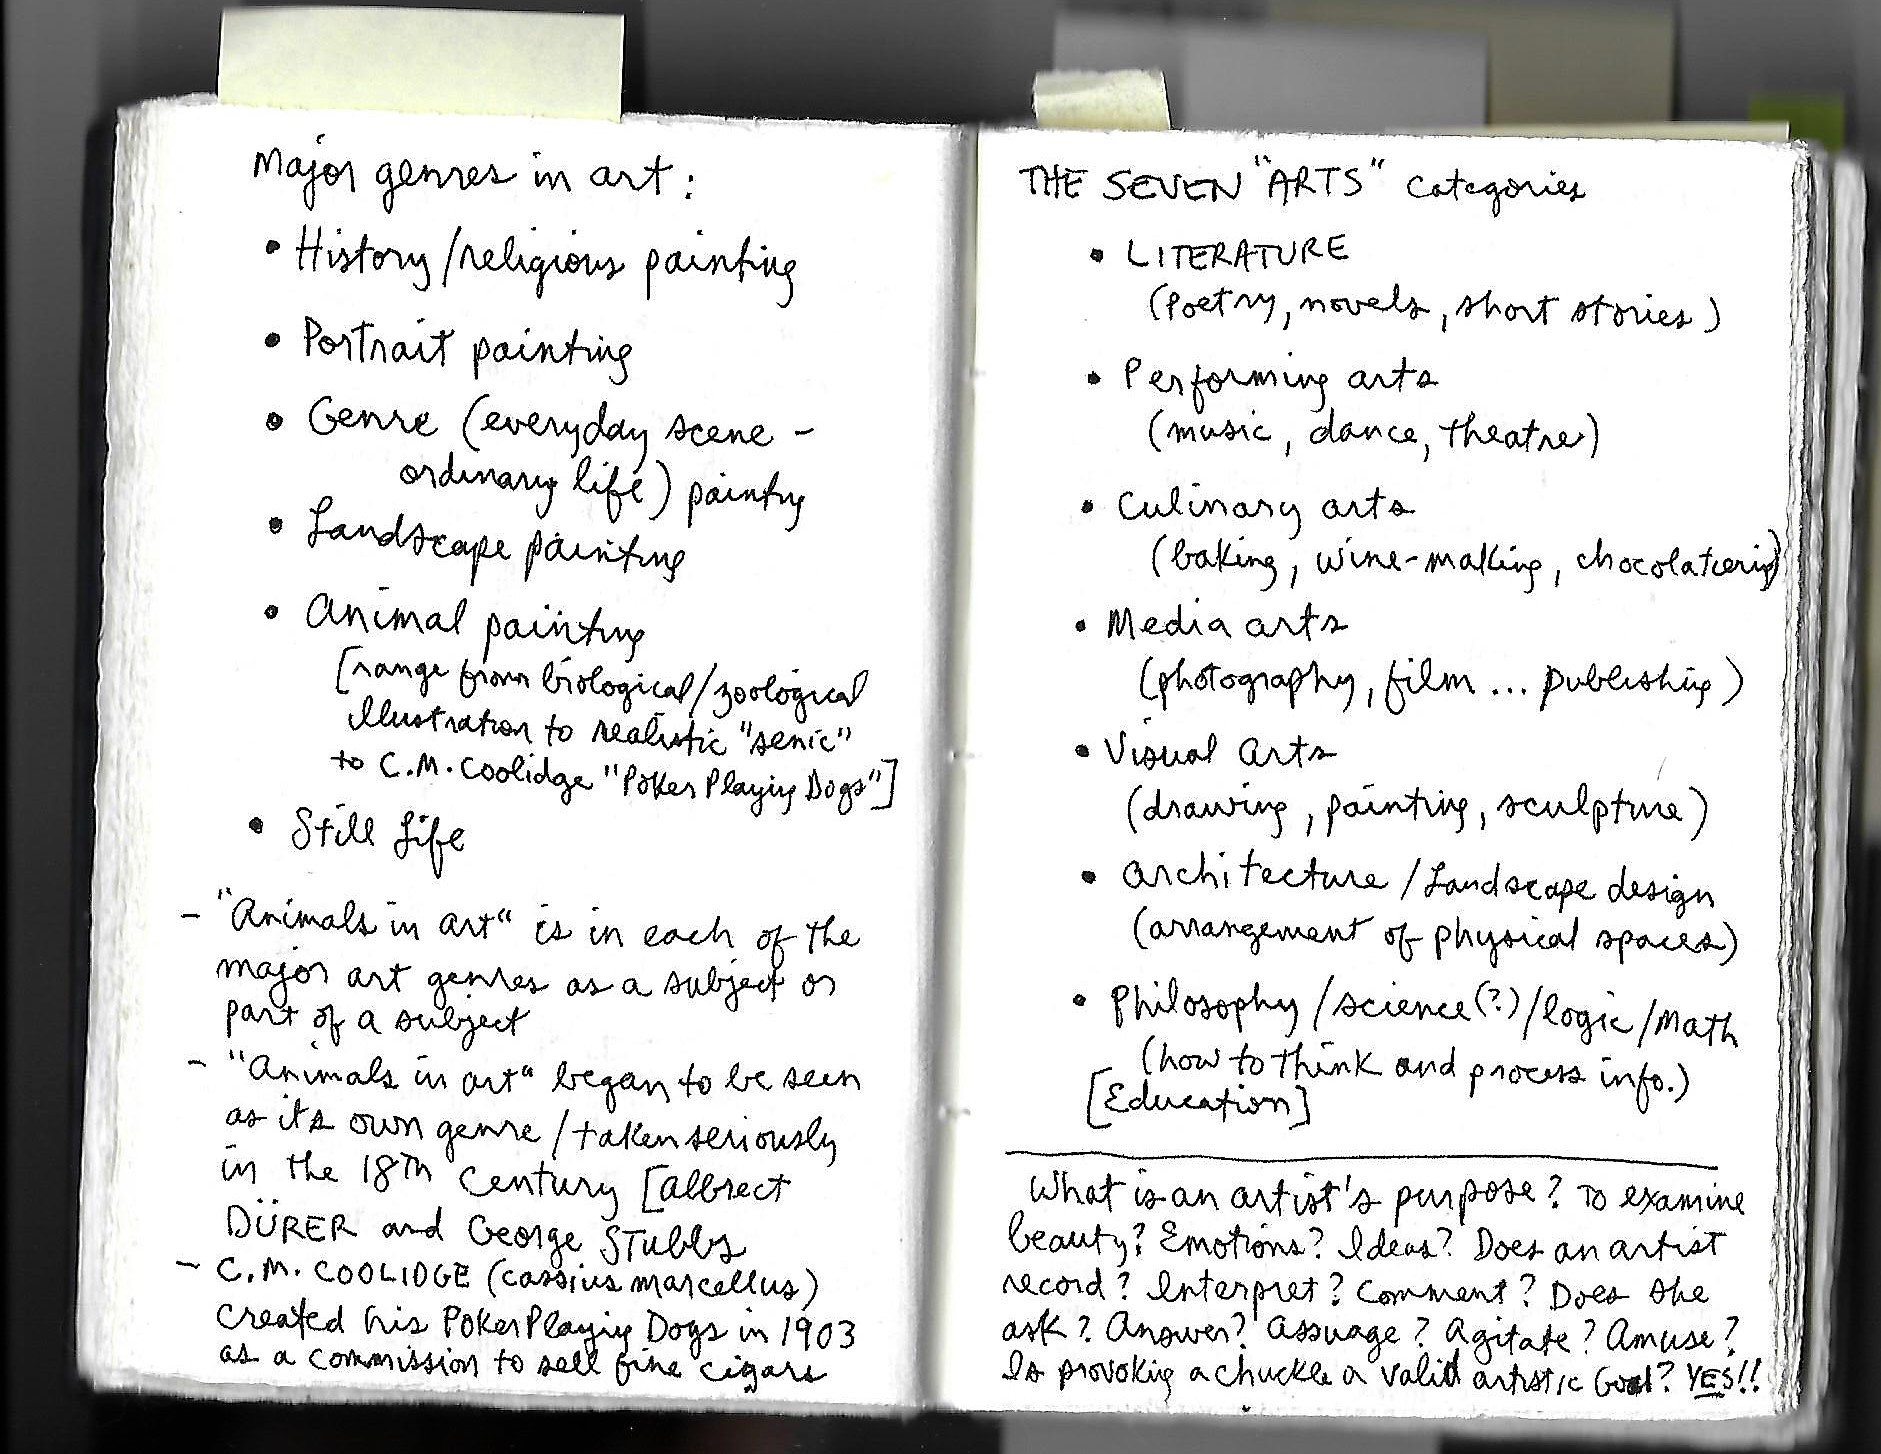 Major genres in art:
• History/religious painting
• Portrait painting
• Genre (everyday scene –
ordinary life) painting
• Landscape painting
• Animal painting
[range from biological/zoological
illustration to realistic "senic"
to C.M. Coolidge "Poker Playing Dogs"]
• Still Life
– "Animals in art" is in each of the
major art genres as a subject or
part of a subject
– "Animals in art" began to be seen
as its own genre/taken seriously
in the 18th Century [albrect
DÜRER and George STUBBS
– C.M. COOLIDGE (cassius marcellus)
created his Poker Playing Dogs in 1903
as a commission to sell fine cigars
THE SEVEN "ARTS" categories
• LITERATURE
(Poetry, novels, short stories)
• Performing arts
(music, dance, theatre)
• Culinary arts
(baking, wine-making, chocolatiering)
• Media arts
(photography, film ... publishing)
• Visual arts
(drawing, painting, sculpture)
• architecture/Landscape design
(arrangement of physical spaces)
• Philosophy/science(?)/logic/Math
(how to think and process info.)
[Education]
What is an artist's purpose? To examine
beauty? Emotions? Ideas? Does an artist
record? Interpret? Comment? Does she
ask? Answer? Assuage? Agitate? Amuse?
Is provoking a chuckle a valid artistic Goal? YES!!